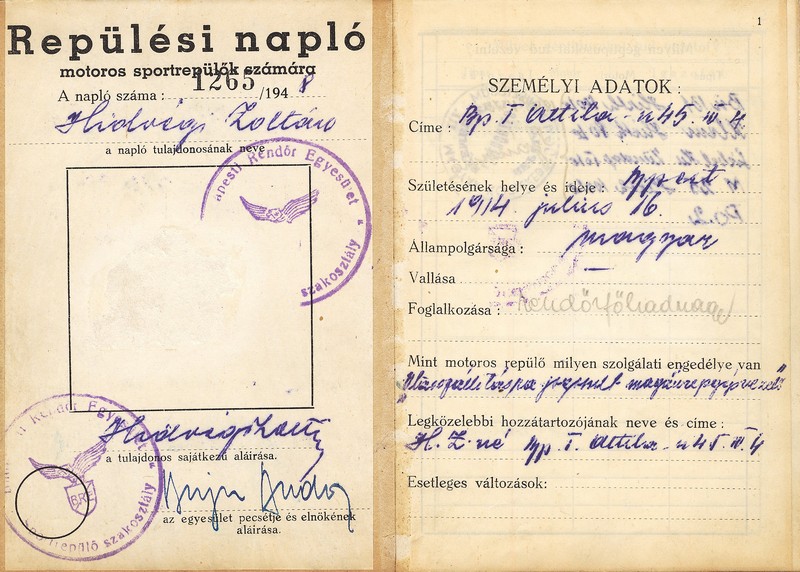 Repülési napló
motoros sportrepülők számára
A napló száma: 1265/1948
Hidvégi Zoltán
a napló tulajdonosának neve
apesti Rendőr Egyesület
szakosztály
Hidvégi Zoltán
a tulajdonos sajátkezű aláírása.
Rendőr Egye
repülő szakosztály
BRE
az egyesület pecsétje és elnökének
aláírása.
1
SZEMÉLYI ADATOK:
Címe: Bp. I Attila-u 45. IV. 4
Születésének helye és ideje Bpest
1914. július 16.
Állampolgársága: magyar
Vallása —
Foglalkozása: rendőrfőhadnagy
Mint motoros repülő milyen szolgálati engedélye van
"Utasszállításra jogosult magánrepgépvezető"
Legközelebbi hozzátartozójának neve és címe:
H. Z-né Bp. I. Attila-u 45. IV. 4
Esetleges változások: